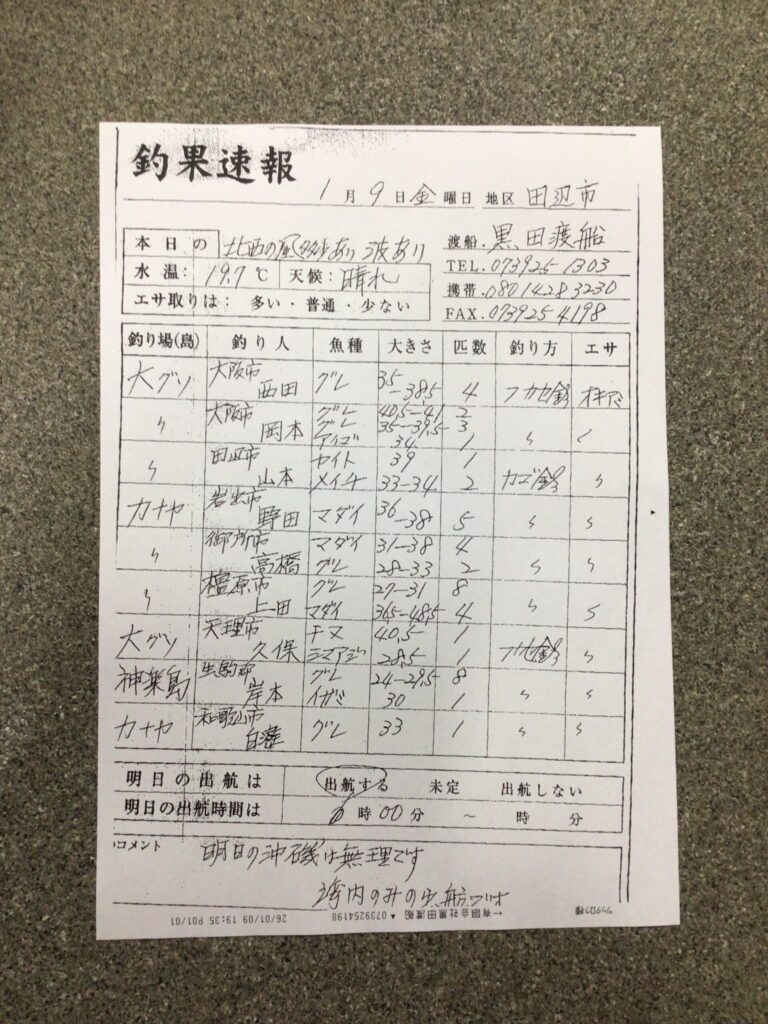 釣果速報
1月9日金曜日 地区 田辺市
本日の 北西の風多少あり 波あり
水温: 19.7℃ 天候: 晴れ
エサ取りは: 多い・普通・少ない
渡船. 黒田渡船
TEL. 073925 1303
携帯. 080 1428 3230
FAX. 073925 4198
釣り場(島) 釣り人 魚種 大きさ 匹数 釣り方 エサ
大グソ 大阪市 西田 グレ 35-38.5 4 フカセ釣 オキアミ
〃 大阪市 岡本 グレ 40.5-41 2 〃 〃
グレ 35-39.5 3
アイゴ 34 1
〃 田辺市 山本 ヤイト 39 1 カゴ釣 〃
メイチ 33-34 2
カナヤ 岩出市 野田 マダイ 36-38 5 〃 〃
〃 御所市 高橋 マダイ 31-38 4 〃 〃
グレ 28-33 2
〃 橿原市 上田 グレ 27-31 8 〃 〃
マダイ 36.5-48.5 4
大グソ 天理市 久保 チヌ 40.5 1 フカセ釣 〃
シマアジ 28.5 1
神楽島 生駒郡 岸本 グレ 24-29.5 8 〃 〃
イガミ 30 1
カナヤ 和歌山市 グレ 33 1 〃 〃
明日の出航は 出航する 未定 出航しない
明日の出航時間は 6時00分 ～ 時 分
コメント 明日の沖磯は無理です
湾内のみの出船です
26/01/09 19:35 P01/01 0739254198 ←有限会社黒田渡船